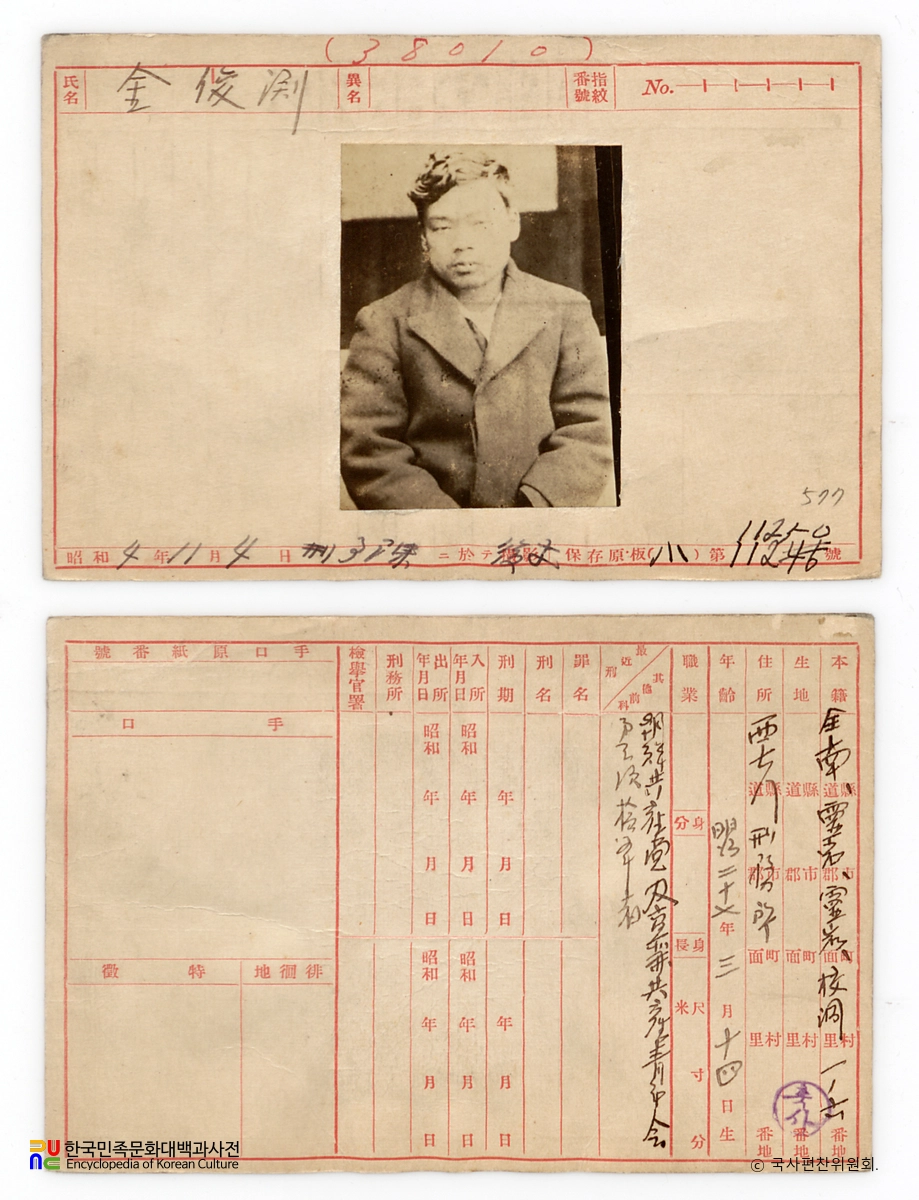 (38010)
氏名 金俊渕 異名 指紋番號 No.
577
11250
昭和4年11月4日 ニ於テ 保存原板(小)第 號
本籍 全南 靈岩 靈岩 校洞 道縣 郡市 面町 里村 番地
生地 道縣 郡市 面町 里村 番地
住所 西大門刑務所 道縣 郡市 面町 里村 番地
年齡 明治二十八年三月十四日生
職業 身分 身長 米 尺 寸 分
最近刑 其他前科
朝鮮共産黨及高麗共産青年会
罪名
刑名
刑期 年 月 日 年 月 日
入所年月日 昭和 年 月 日 昭和 年 月 日
出所年月日 昭和 年 月 日 昭和 年 月 日
刑務所
檢擧官署
手口原紙番號
手口
徘徊地
特徵
한국민족문화대백과사전
Encyclopedia of Korean Culture
© 국사편찬위원회.